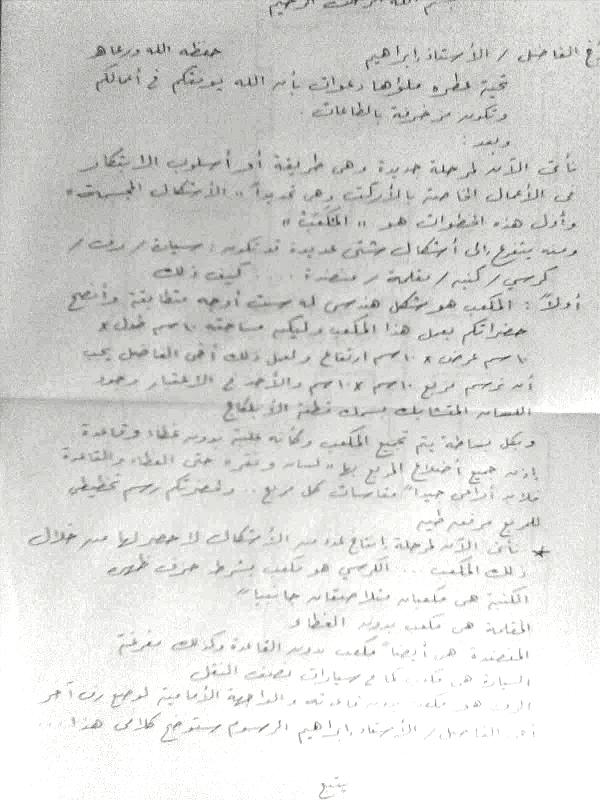 بسم الله الرحمن الرحيم
أخ الفاضل / الأستاذ إبراهيم حفظه الله ورعاه
تحية عطره ملؤها دعوات بأن الله يوفقكم في أعمالكم
وتكون مزخرفة بالطاعات .
وبعد :
نأتى الآن لمرحلة جديدة وهى طريقة أو أسلوب الابتكار
فى الأعمال الخاصة بالأركت وهى تحديداً " الأشكال المجسمة "
وأول هذه الخطوات هو " المكعب "
ومنه يتفرع إلى أشكال شتى عديدة قد تكون : سيارة / رف /
كرسي / كنبه / مقلمة / منضدة .... كيف ذلك
أولاً : المكعب هو شكل هندسى له ست أوجه متطابقة وأنصح
حضراتكم بعمل هذا المكعب وليكن مساحته ١٠ سم طول ×
١٠ سم عرض × ١٠ سم ارتفاع ولعمل ذلك أخى الفاضل يجب
أن نرسم مربع ١٠ سم × ١٠ سم والأخذ في الاعتبار وجود
اللسان المتشابك سمك قطعة الأبلكاج
وبكل بساطة يتم تجميع المكعب وكأنه علبة بدون غطاء وقاعدة
إذن جميع أضلاع المربع بها لسان ونقره حتى الغطاء والقاعدة
فلابد أراعى جيداً مقاسات كل مربع .. ولحضرتكم رسم تخطيطى
للمربع مرفقه طيه
* نأتى الآن لمرحلة إنتاج عدد من الأشكال لا حصر لها من خلال
ذلك المكعب ... الكرسي هو مكعب بشرط حرف ظهره
الكنبة هى مكعبان متلاصقان جانبياً
المقلمة هى مكعب بدون الغطاء
المنضدة هى أيضاً مكعب بدون القاعدة وكذلك مفرغة
السيارة هى مكعب كما فى سيارات نصف النقل
الرف هو مكعب بدون قاعدته والواجهة الأمامية لوضع رف آخر
أخى الفاضل / الأستاذ إبراهيم الرسوم ستوضح كلامى هذا ...
يتبع